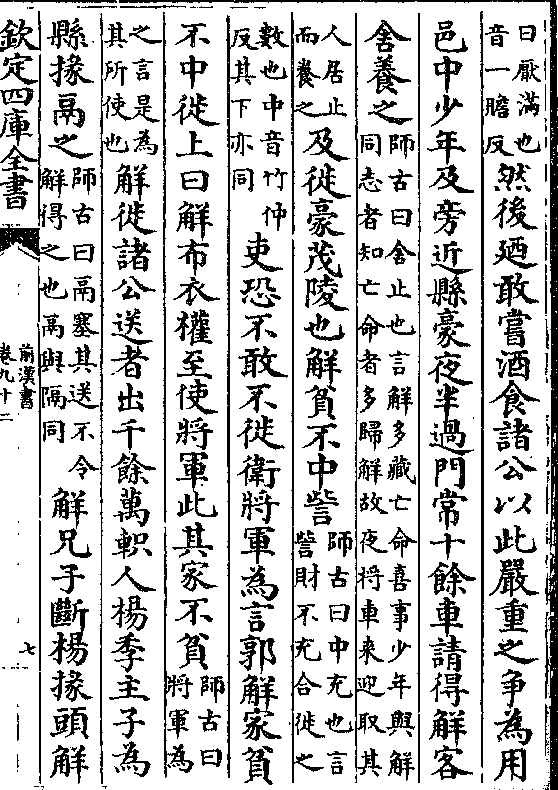 曰厭滿也
音一贍反
然後廼敢嘗酒食諸公以此嚴重之争為用
邑中少年及旁近縣豪夜半過門常十餘車請得解客
舍養之
師古曰舍止也言解多藏亡命喜事少年與解
同志者知亡命者多歸解故夜将車來迎取其
人居止
而養之
及徙豪茂陵也解貧不中訾
師古曰中充也言
訾財不充合徙之
數也中音竹仲
反其下亦同
吏恐不敢不徙衛將軍為言郭解家貧
不中徙上曰解布衣權至使將軍此其家不貧
師古曰
將軍為
之言是為
其所使也
解徙諸公送者出千餘萬軹人楊季主子為
縣掾鬲之
師古曰鬲塞其送不令
解得之也鬲與隔同
解兄子斷楊掾頭解
欽定四庫全書
前漢書
卷九十二
七